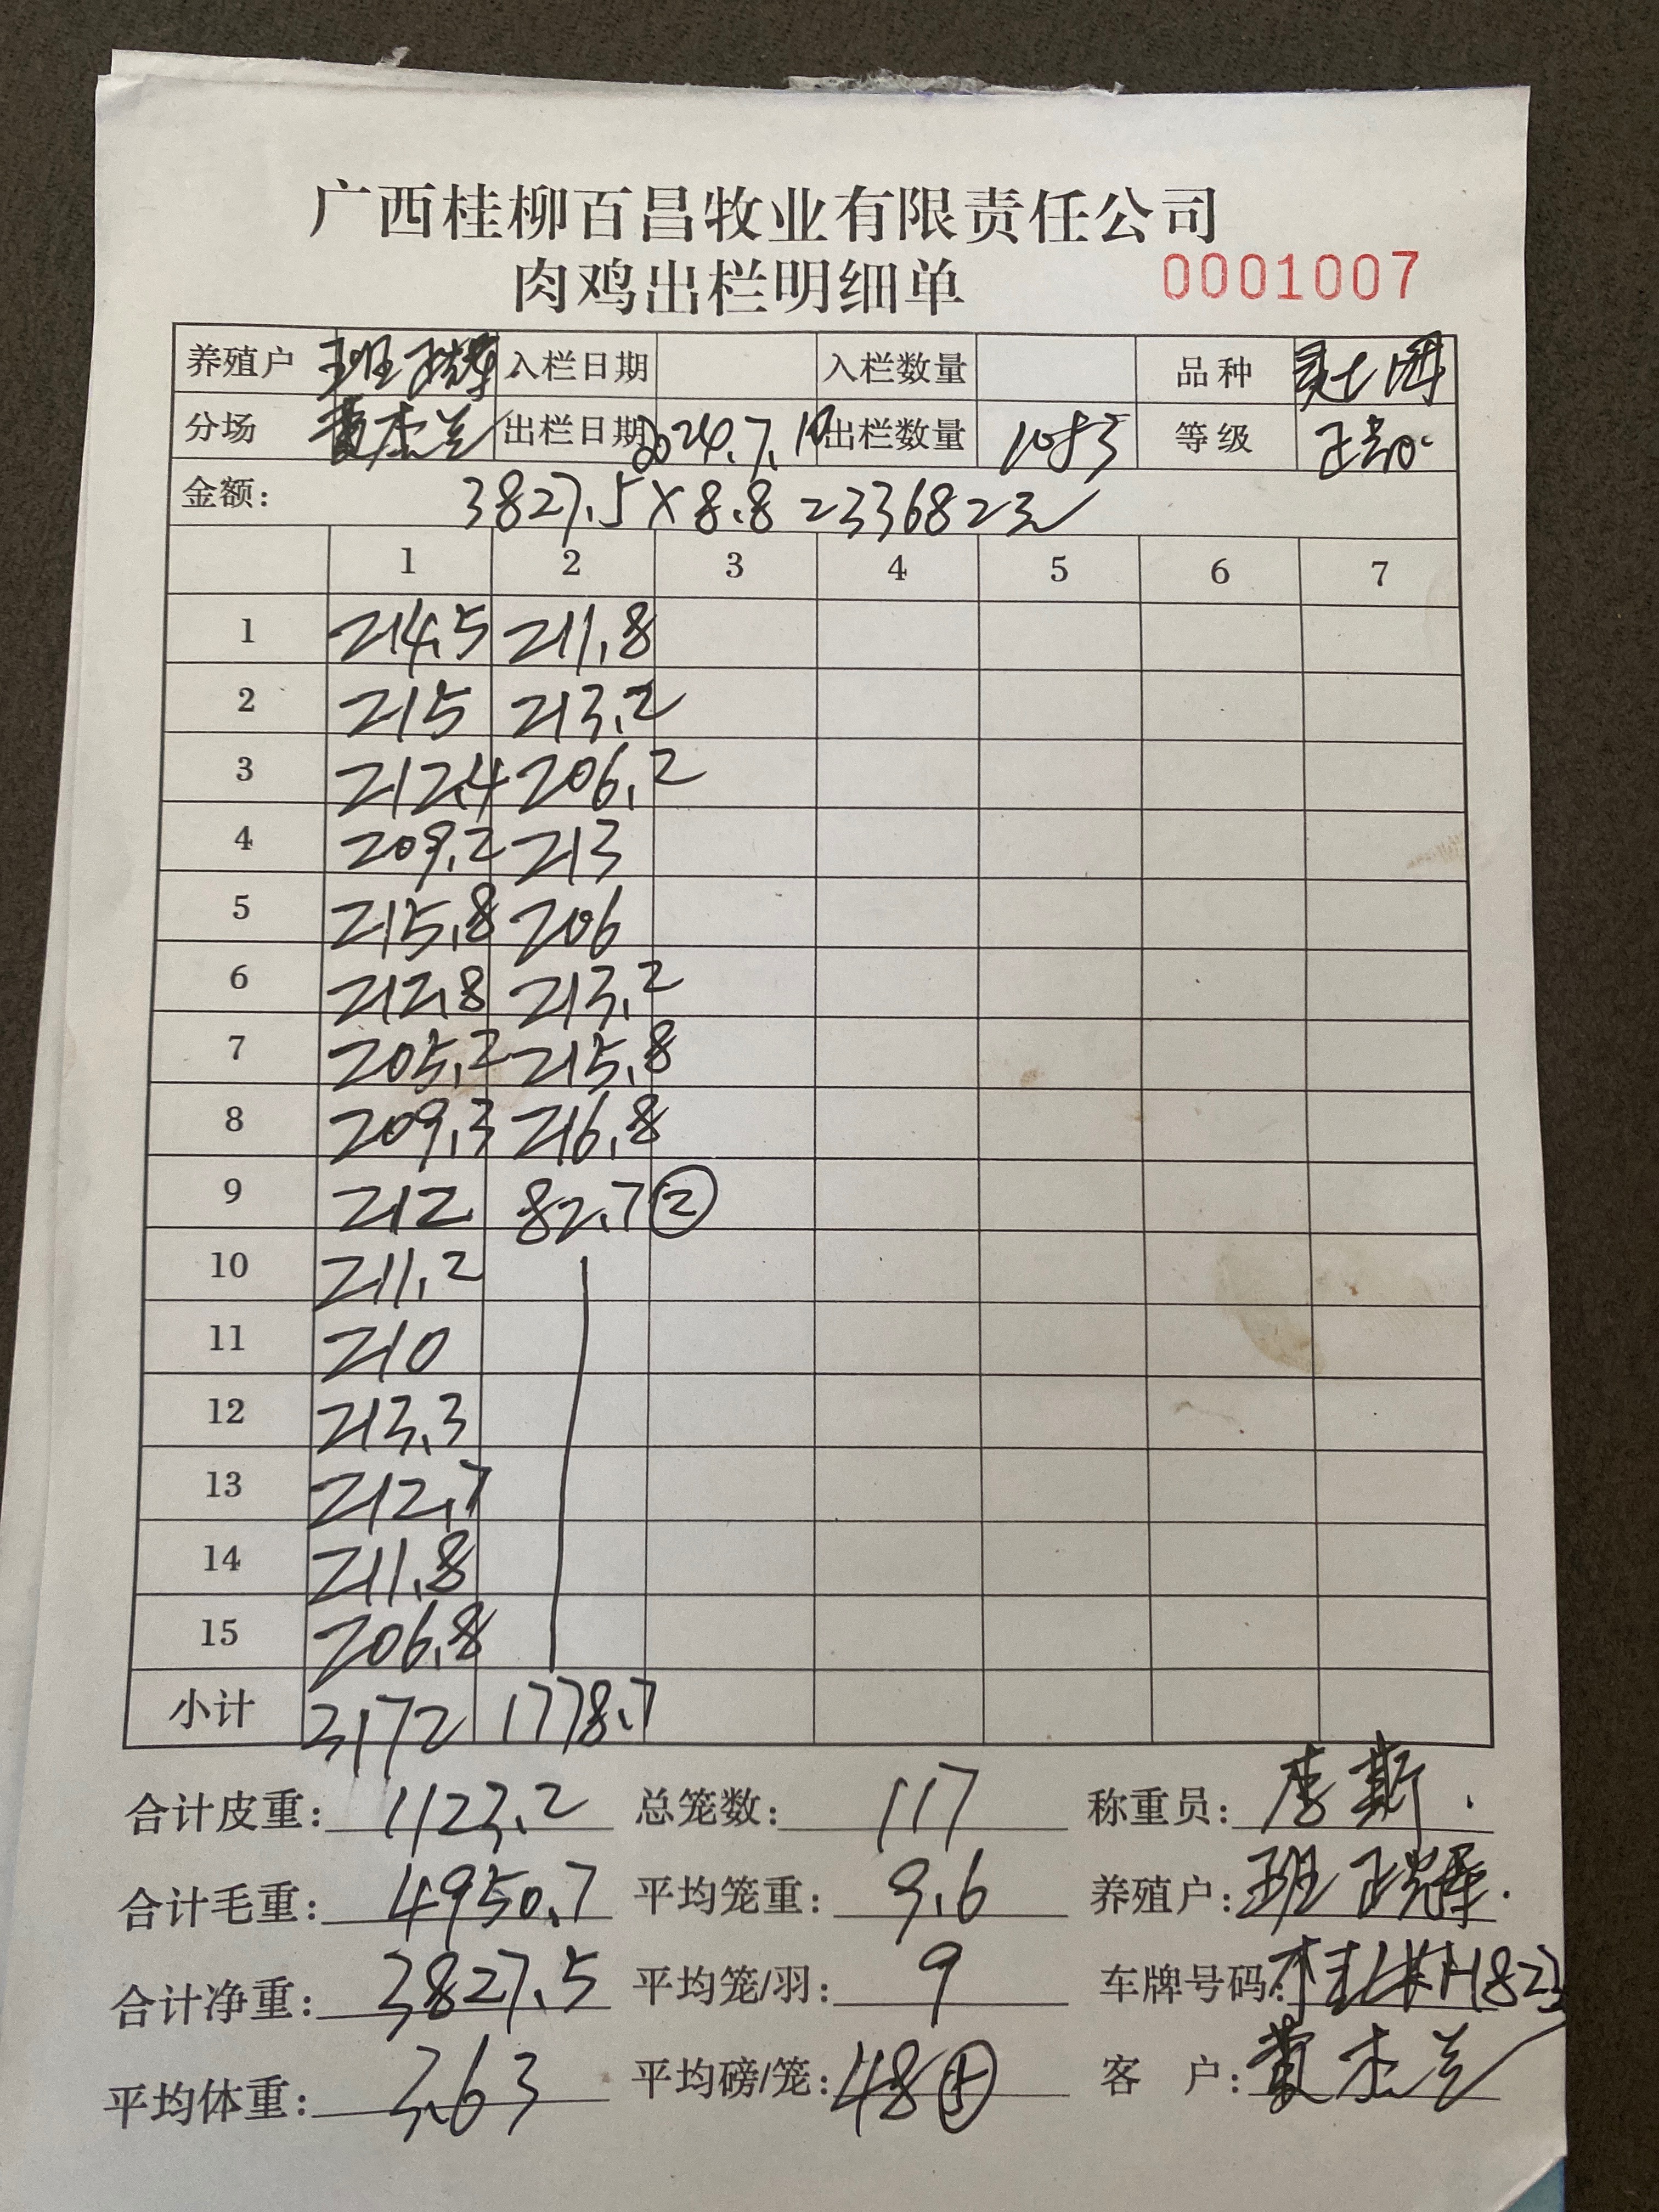 广西桂柳百昌牧业有限责任公司
肉鸡出栏明细单 0001007
养殖户 班正辉 入栏日期 入栏数量 品种
分场 黄杰兰 出栏日期 2024.7.10 出栏数量 1053 等级
金额: 3827.5×8.8=33682元
1 2 3 4 5 6 7
1 214.5 211.8
2 215 213.2
3 212.4 206.2
4 209.2 213
5 215.8 206
6 212.8 213.2
7 205.2 215.8
8 209.3 216.8
9 212 82.7 ②
10 211.2
11 210
12 213.3
13 212.7
14 211.8
15 206.8
小计 3172 1778.7
合计皮重: 1123.2 总笼数: 117 称重员: 李斯
合计毛重: 4950.7 平均笼重: 9.6 养殖户: 班正辉
合计净重: 3827.5 平均笼/羽: 9 车牌号码:
平均体重: 3.63 平均磅/笼: 48 ⑤ 客 户: 黄杰兰